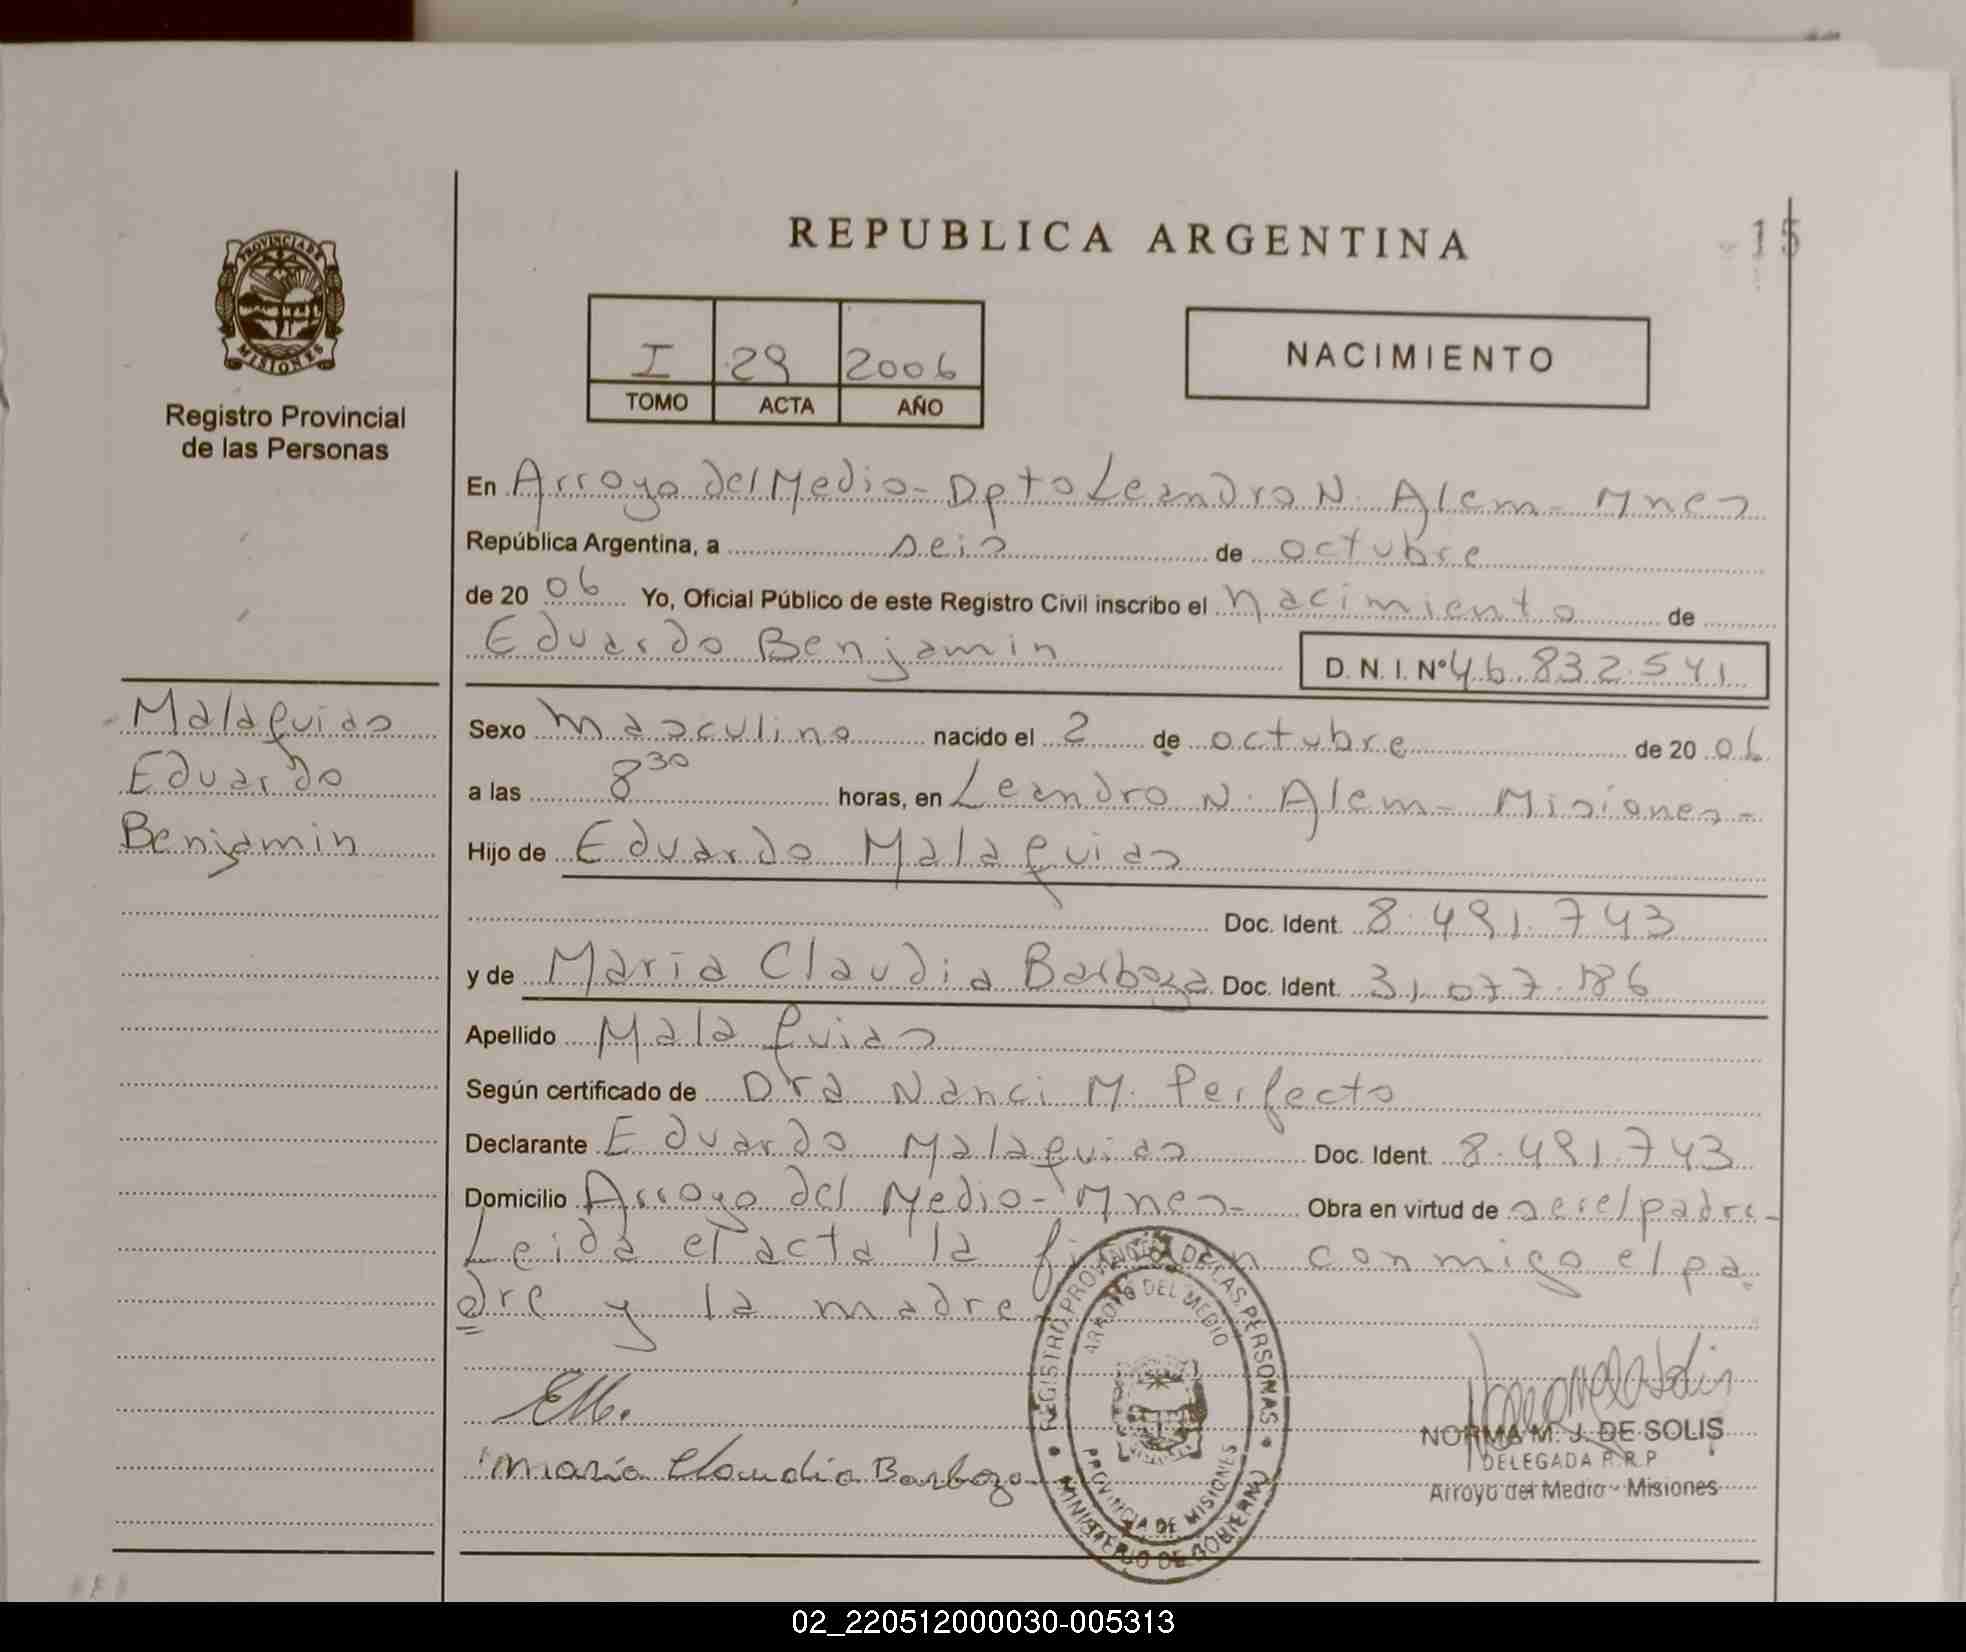 REPUBLICA ARGENTINA
15
PROVINCIA DE MISIONES
Registro Provincial
de las Personas
I 29 2006
TOMO ACTA AÑO
NACIMIENTO
En Arroyo del Medio - Dpto Leandro N. Alem - Mnes
República Argentina, a seis de octubre
de 2006 Yo, Oficial Público de este Registro Civil inscribo el nacimiento de
Eduardo Benjamin D. N. I. Nº 46.832.541
Malaquias
Eduardo
Benjamin
Sexo masculino nacido el 2 de octubre de 2006
a las 8 30 horas, en Leandro N. Alem - Misiones -
Hijo de Eduardo Malaquias
Doc. Ident. 8.491.743
y de Maria Claudia Barboza Doc. Ident. 31.077.186
Apellido Malaquias
Según certificado de Dra Nanci M. Perfecto
Declarante Eduardo Malaquias Doc. Ident. 8.491.743
Domicilio Arroyo del Medio - Mnes - Obra en virtud de ser el padre -
Leida el acta la firman conmigo el pa
dre y la madre
EM.
Maria Claudia Barboza
REGISTRO PROVINCIAL DE LAS PERSONAS
ARROYO DEL MEDIO
PROVINCIA DE MISIONES
MINISTERIO DE GOBIERNO
NORMA M. J. DE SOLIS
DELEGADA R.R.P
Arroyo del Medio - Misiones
02_220512000030-005313